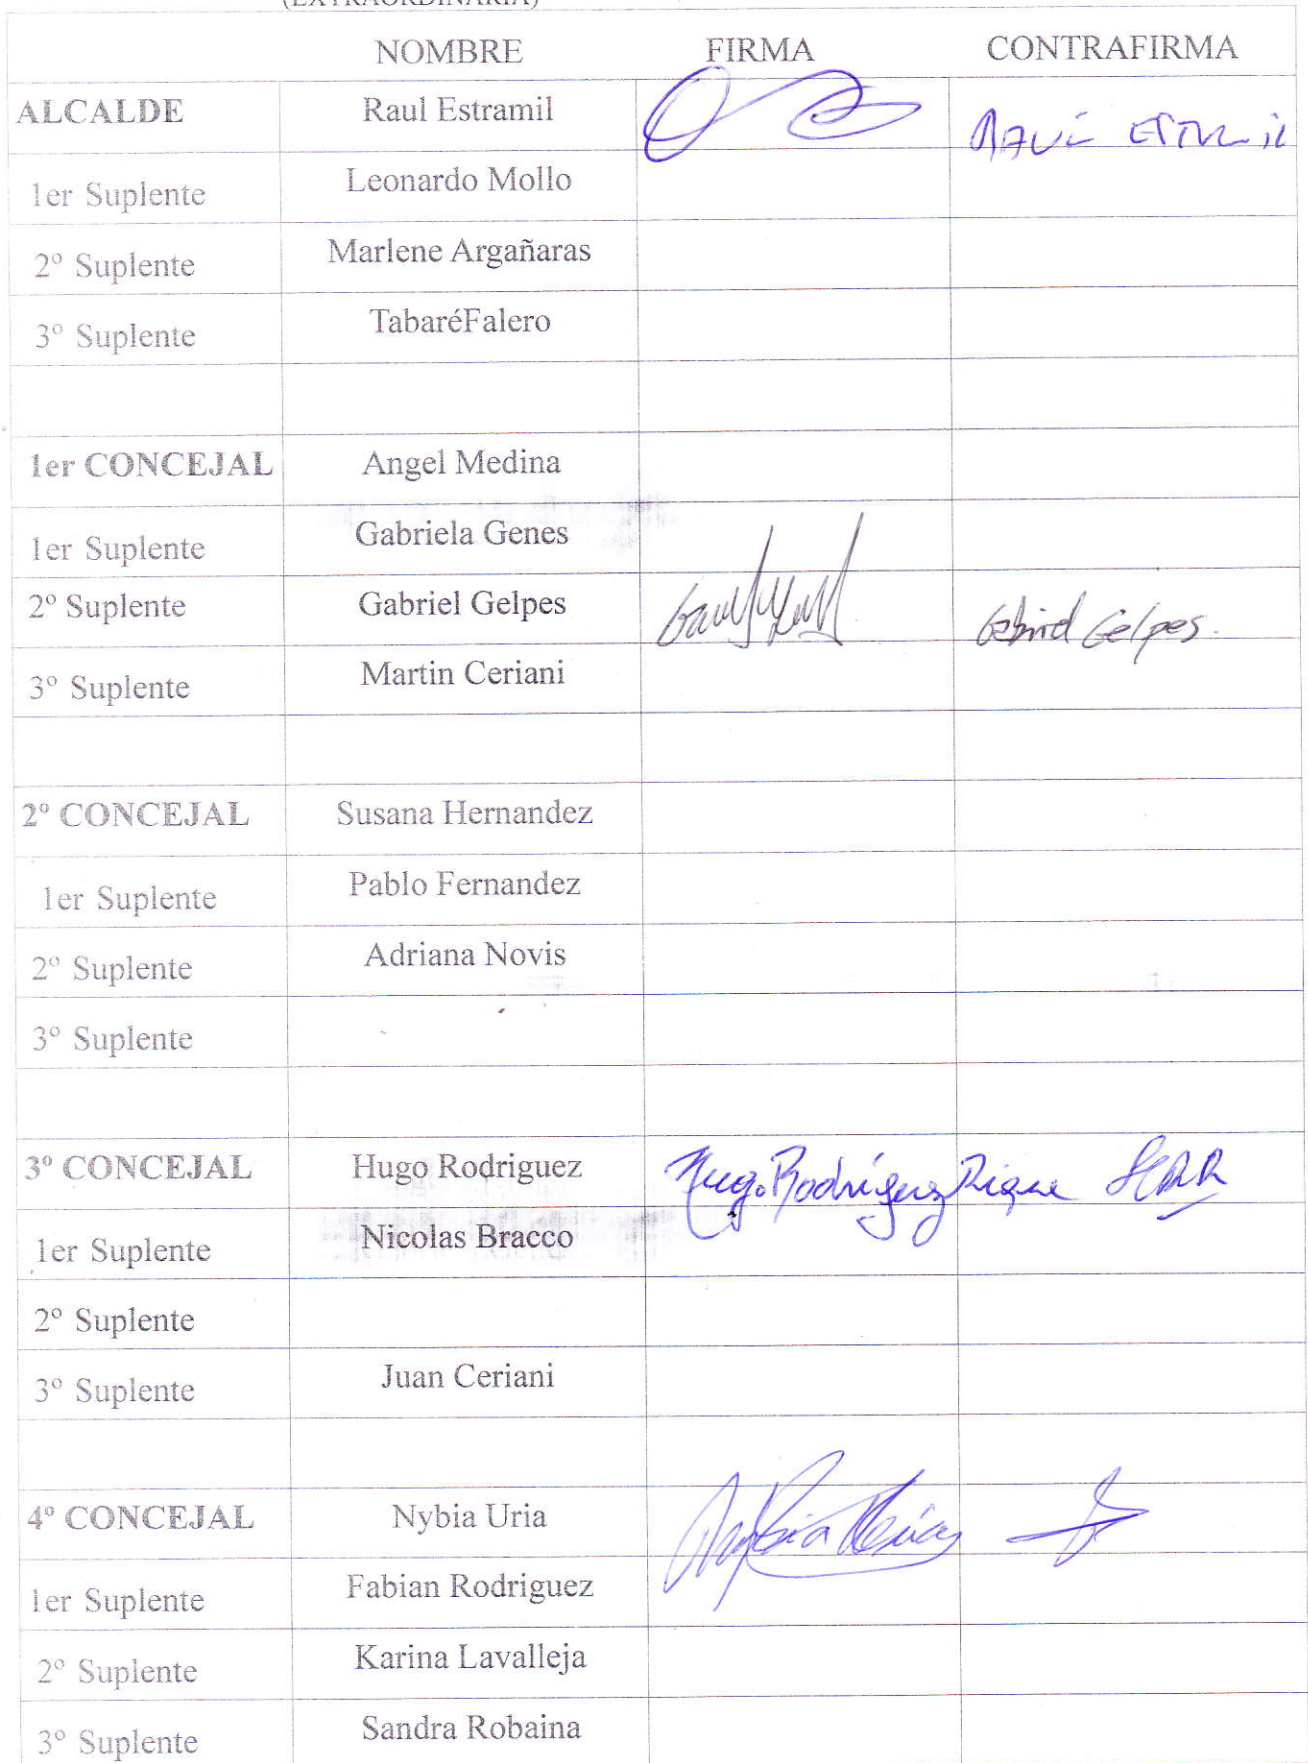 (EXTRAORDINARIA)
NOMBRE FIRMA CONTRAFIRMA
ALCALDE Raul Estramil
1er Suplente Leonardo Mollo
2º Suplente Marlene Argañaras
3º Suplente TabaréFalero
1er CONCEJAL Angel Medina
1er Suplente Gabriela Genes
2º Suplente Gabriel Gelpes Gabriel Gelpes.
3º Suplente Martin Ceriani
2º CONCEJAL Susana Hernandez
1er Suplente Pablo Fernandez
2º Suplente Adriana Novis
3º Suplente
3º CONCEJAL Hugo Rodriguez Hugo Rodríguez
1er Suplente Nicolas Bracco
2º Suplente
3º Suplente Juan Ceriani
4º CONCEJAL Nybia Uria Nybia
1er Suplente Fabian Rodriguez
2º Suplente Karina Lavalleja
3º Suplente Sandra Robaina